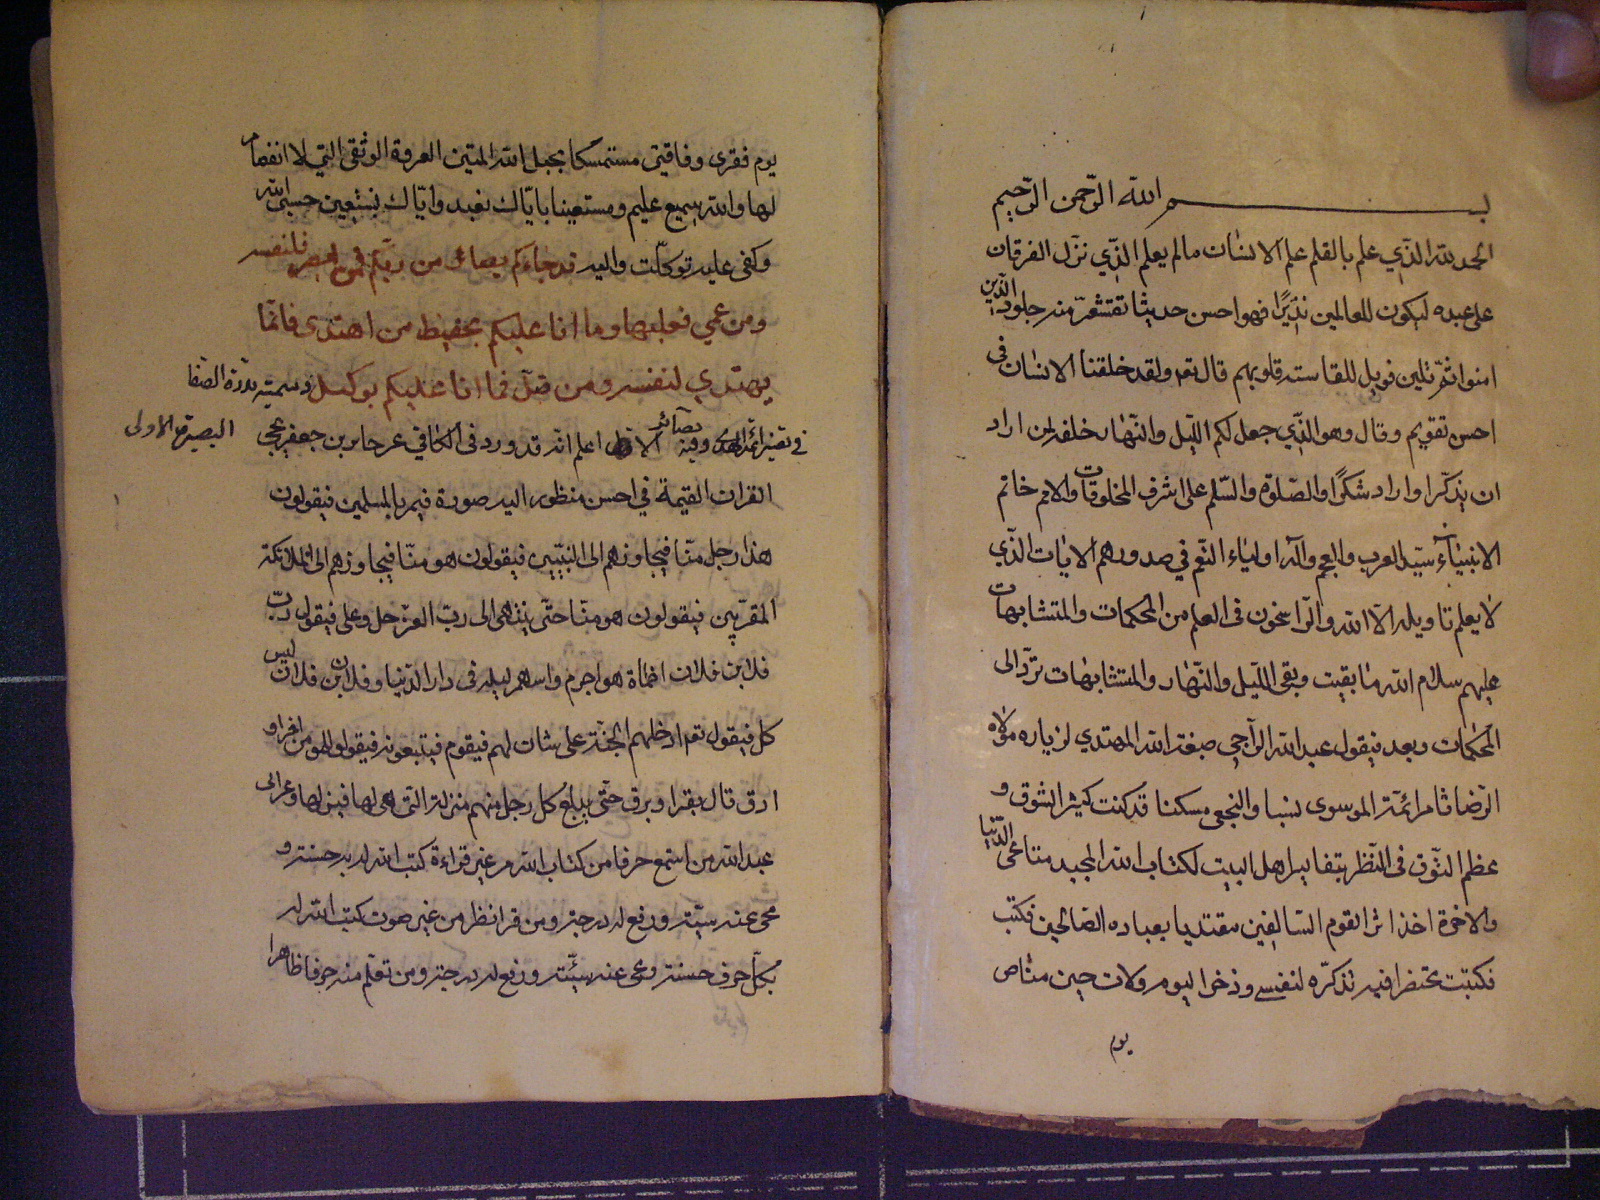 بسم الله الرّحمن الرّحيم
الحمد لله الّذي علم بالقلم علم الانسان مالم يعلم الّذي نزّل الفرقان
على عبده ليكون للعالمين نذيرًا فهو احسن حديثا تقشعرّ منه جلود الّذين
امنوا ثمّ تلين فويل للقاسية قلوبهم قال تعه ولقد خلقنا الانسان فى
احسن تقويم وقال وهو الّذي جعل لكم اللّيل والنّهار خلفة لمن اراد
ان يذكّر او اراد شكرًا والصّلوة والسّلم على اشرف المخلوقات والامم خاتم
الانبياء سيّد العرب والعجم وآله اولياء النّعم في صدورهم الايات الّذي
لا يعلم تاويله الّا الله والرّاسخون فى العلم من المحكمات والمتشابهات
عليهم سلام الله ما بقيت وبقى اللّيل والنّهار والمتشابهات تردّ الى
المحكمات وبعد فيقول عبد الله الرّاجي صبغة الله المهتدي لزيارة مولاه
الرّضا ثامن ائمّته الموسوى نسبا والنجفى مسكنا قد كنت كثير الشوق و
عظم التّوق فى النّظر بتفاسير اهل البيت لكتاب الله المجيد متاعى الدّنيا
والاخرة اخذا اثر القوم السّالفين مقتديا بعباده الصّالحين فكتب
فكتبت مختصرا فيه تذكرّه لنفسي وذخرا ليوم ولات حين مناص
يوم
يوم فقرى وفاقتى مستمسكا بحبل الله المتين العروة الوثقى التي لا انفصام
لها والله سميع عليم ومستعينا باياّك نعبد وايّاك نستعين حسبى الله
وكفى عليه توكلّت واليه قد جاءكم بصائر من ربّكم فمن ابصر فلنفسه
ومن عمي فعليها وما انا عليكم بحفيظ من اهتدى فانّما
يهتدي لنفسه ومن ضلّ فما انا عليكم بوكيل وسميته بدرّة الصّفا
في تفسير ائمّة الهدى وفيه بصآئر الاولى اعلم انّه قد ورد فى الكافي عن جابر بن جعفر يجئ
البصيرة الاولى
القران القيمة في احسن منظور اليه صورة فيمر بالمسلمين فيقولون
هذا رجل منّا فيجاوزهم الى النبيّين فيقولون هو منّا فيجاوزهم الى الملائكة
المقرّبين فيقولون هو منّا حتّى ينتهى الى ربّ العزّ جل وعلى فيقول ربّ
فلان بن فلان اظماة هواجره واسهر ليله فى دار الدّنيا وفلان بن فلان ليس
كل فيقول تعه ادخلهم الجنّة على شان لهم فيقوم فيتبعونه فيقول للمومن اقرا و
ارق قال يقرا ويرق حتّى يبلغ كل رجل منهم منزلته التّى هى لها فينزلها وعن ابى
عبد الله من استمع حرفا من كتاب الله من غير قراءة كتب الله له به حسنة و
محى عنه سيّئة ورفع له درجة ومن قرا نظرا من غير صوت كتب الله له
بكلّ حرف حسنة ومحى عنه سيّئة ورفع له درجة ومن تعلّم منه حرفا ظاهرا